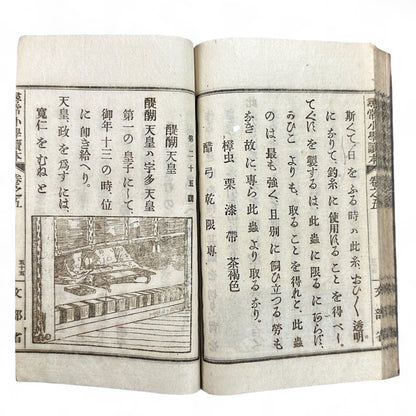 尋常小學讀本 卷之五 文部省
斯くて日をふる時ハ此糸、おひ〳〵透明
になりて、釣糸に使用することを得べし。
てぐすを製するは、此蟲に限るにあらず、
よりも、取ることを得れど、此蟲
は、最も強く、且別に飼ひ立つる勞も
なき故に專ら此蟲より取るなり。
樟虫 栗 漆 帶 茶褐色
醋 弓 乾 限 專
第二十五課
醍醐天皇
醍醐天皇ハ宇多天皇
第一の皇子にして、
御年十三の時位
に卽き給へり。
天皇、政を爲すには、
寬仁をむねと
尋常小學讀本 卷之五 五十五 文部省